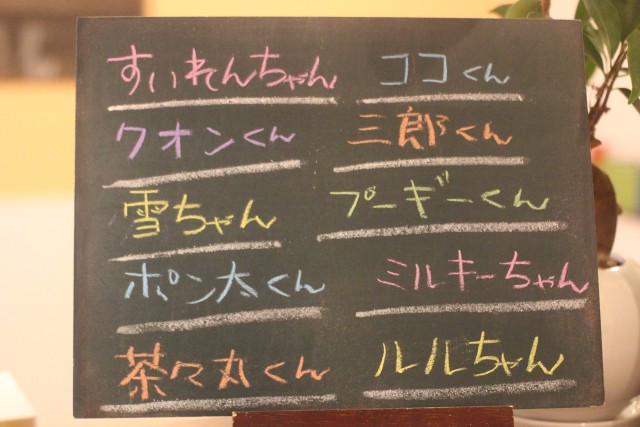 すいれんちゃん
ココくん
クオンくん
三郎くん
雪ちゃん
プーギーくん
ポン太くん
ミルキーちゃん
茶々丸くん
ルルちゃん